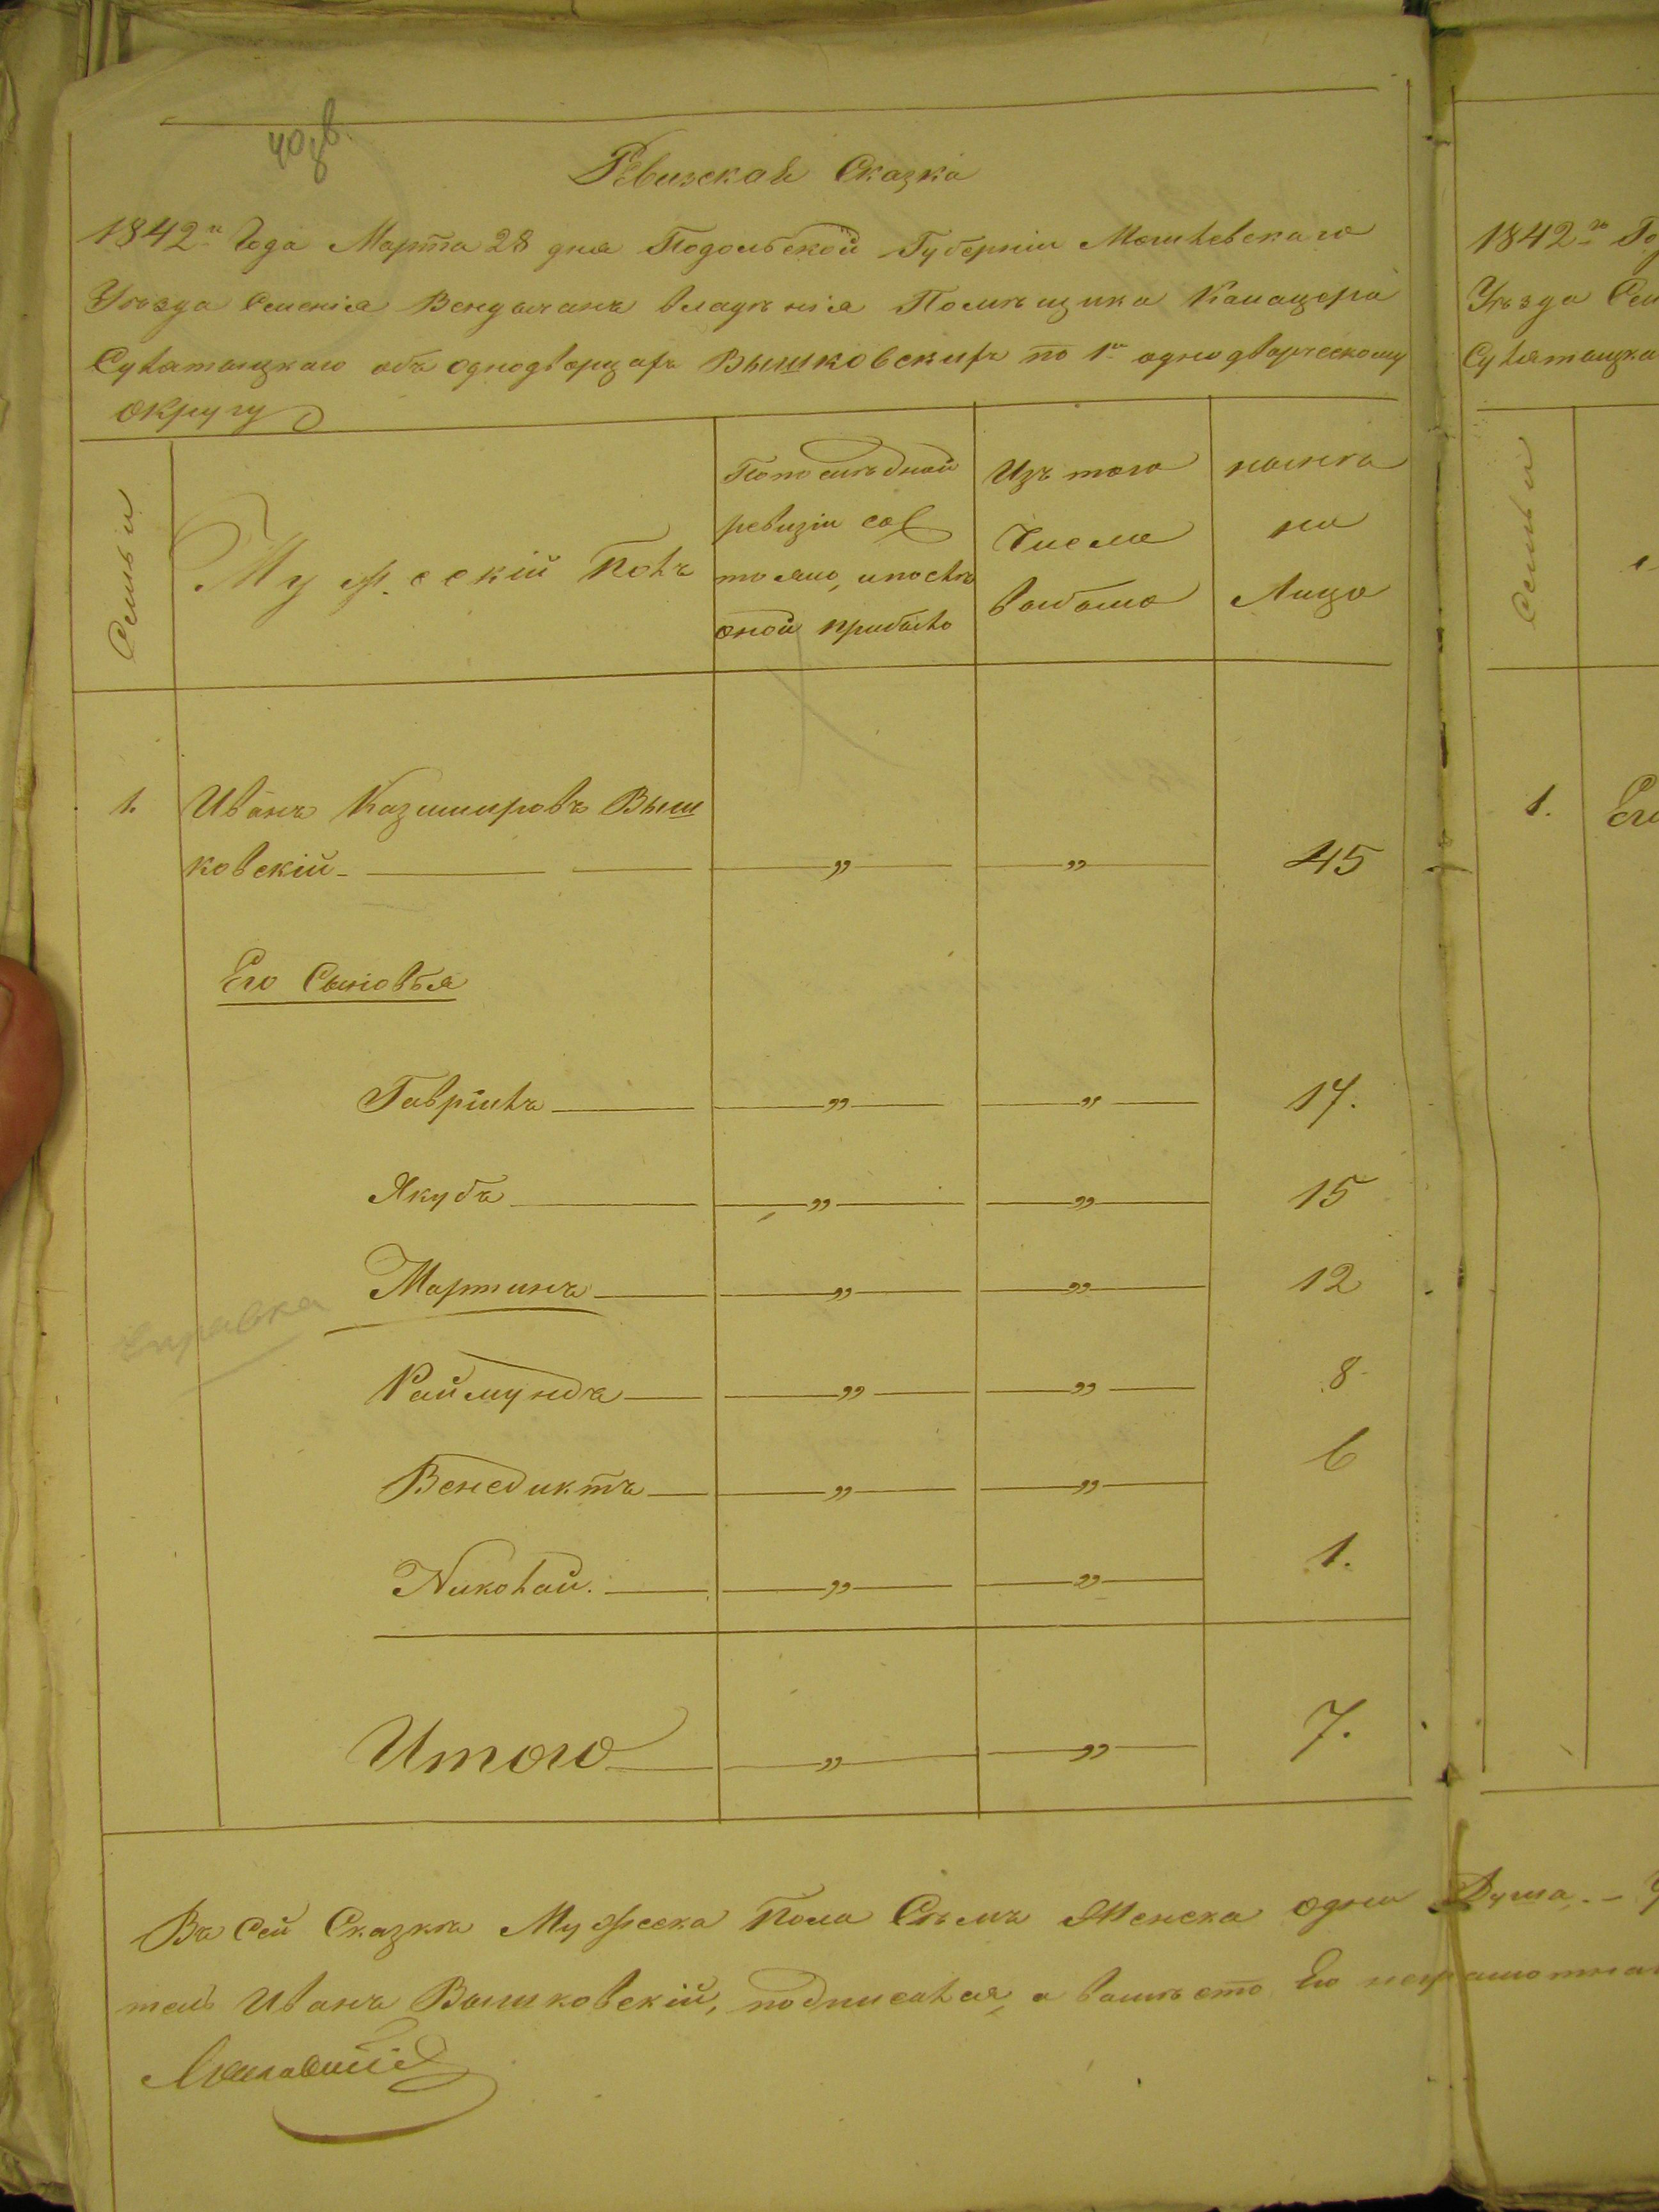 40 зв.
Ревизская Сказка
1842го Года Марта 28 дня Подольской Губерніи Могилевскаго
Уѣзда Селенія Вендычанъ владѣнія Помѣщика Камацера
Сулятыцкаго объ однодворцахъ Вышковскихъ по 1му однодворческому
округу
Семьи
Мужескій Полъ
По послѣдней
ревизіи сос
тояло, и послѣ
оной прибыло
Изъ того
Числа
выбыло
нынѣ
на
Лицо
1. Иванъ Казимировъ Выш
ковскій - „ „ 45
Его Сыновья
Гавріилъ „ „ 17.
Якубъ „ „ 15
Мартинъ „ „ 12
Справка
Раймундъ „ „ 8
Венедиктъ „ „ 6
Николай. „ „ 1.
Итого „ „ 7.
Въ Сей Сказкѣ Мужеска Пола Сѣмъ Женска одна Душа. -
тель Иванъ Вышковскій, подписался, а вмѣсто Его неграмотна
1842го Го
Уѣзда Сел
Сулятыцка
Семьи
1. Его